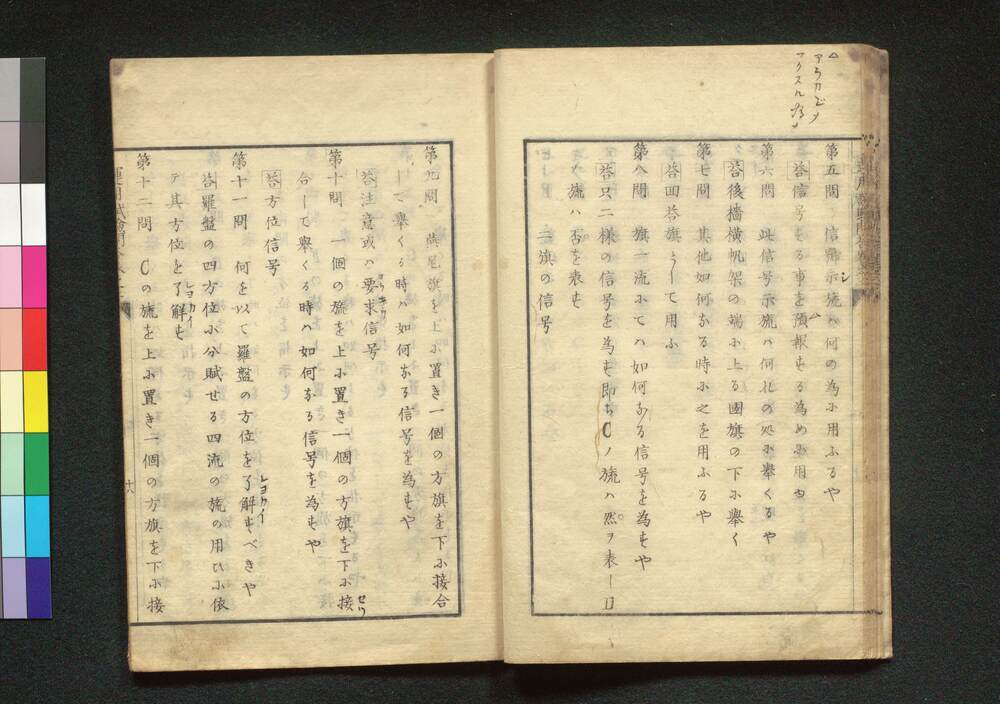 第五問 信号示旒ハ何の為ふ用ふるや
答 信号をる事を預報せる為め
第六問 此信号示旒ハ何れの処ふ挙くるや
答 後檣横帆架の端ふ上る國旗の下ふ舉く
第七問 其他如何なる時ふ之を用ふるや
答 回答旗として用ふ
第八問 旗一流ふてハ如何なる信号を為すや
答 只二様の信号を為す即ちCノ旒ハ然ヲ表し D
ノ旒ハ否を表す
二旗の信号
第九問 燕尾旗を上ふ置き一個の方旗を下ふ接合
して舉くる時ハ如何なる信号を為すや
答 注意或ハ要求信号
第十問 一個の旒を上ふ置き一個の方旗を下ふ接
合して舉くる時ハ如何なる信号を為すや
答 方位信号
第十一問 何を以て羅盤の方位を了解すべきや
答 羅盤の四方位ふ分賦せる四流の旒の用ひふ依
テ其方位を了解す
第十二問 Cの旒を上ふ置き一個の方旗を下ふ接
十六